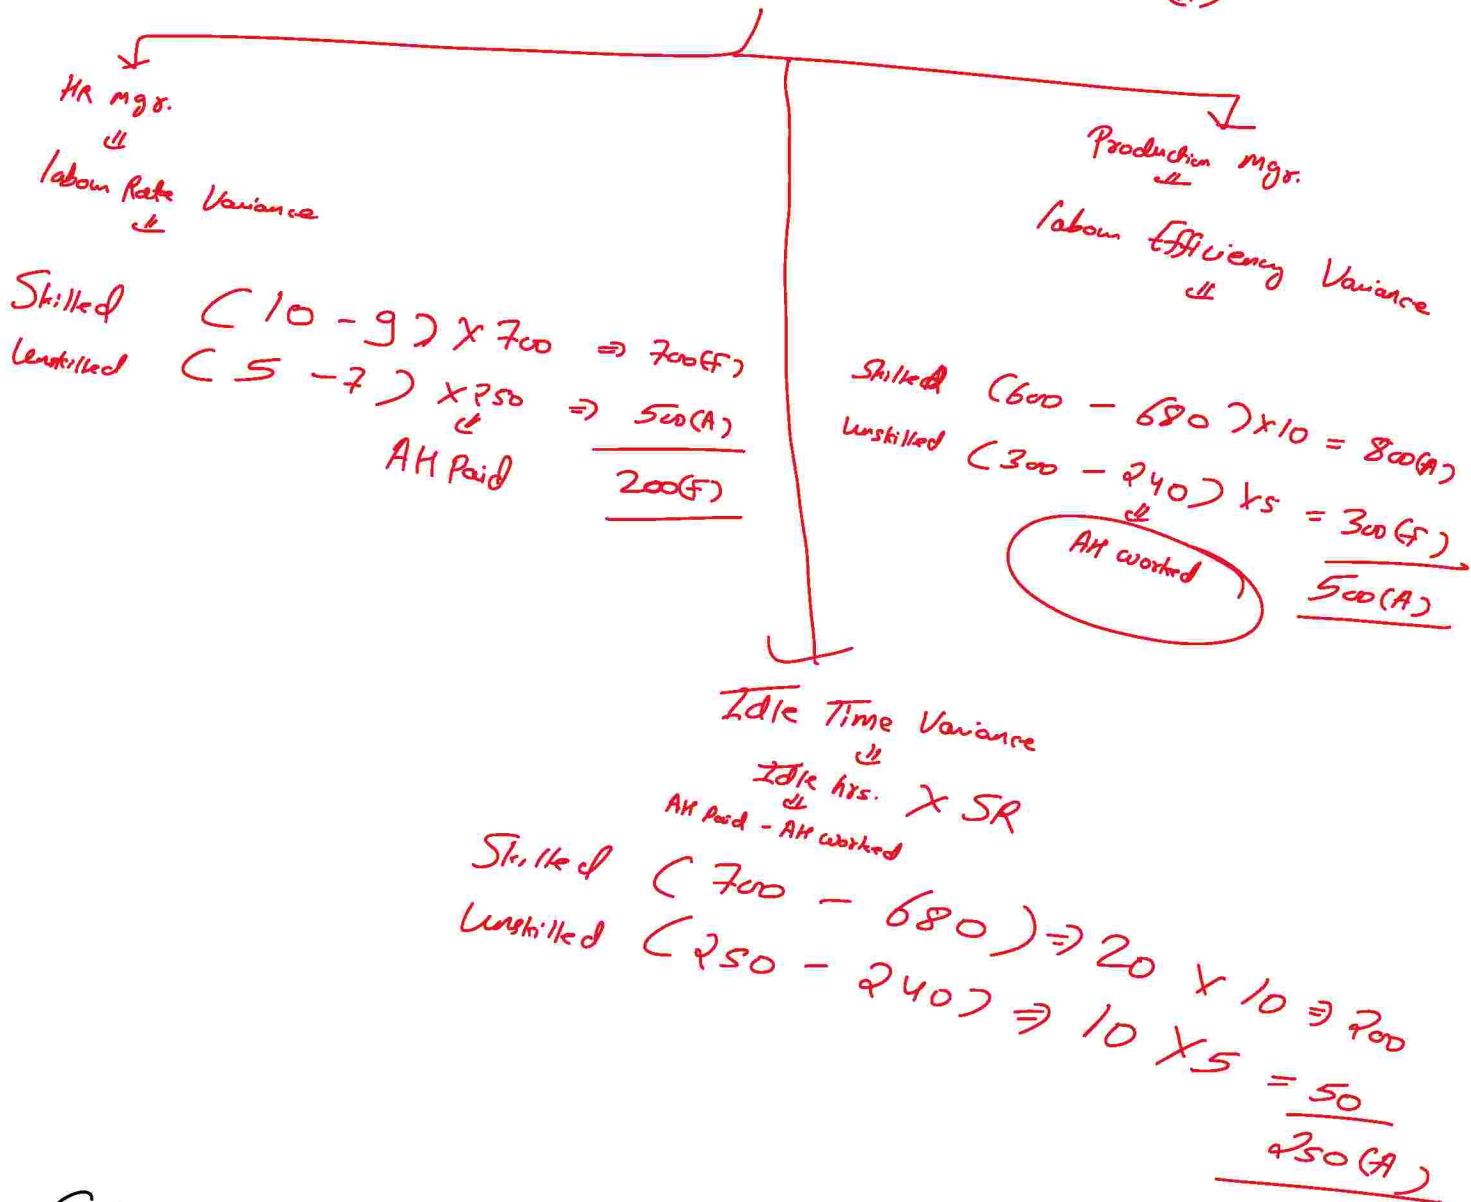 HR Mgr.
Labour Rate Variance
Skilled (10 - 9) × 700 ⇒ 700(F)
Unskilled (5 - 7) × 250 ⇒ 500(A)
AH Paid
200(F)
Production Mgr.
Labour Efficiency Variance
Skilled (600 - 680) × 10 = 800(A)
Unskilled (300 - 240) × 5 = 300(F)
AH worked
500(A)
Idle Time Variance
Idle hrs. × SR
AH Paid - AH worked
Skilled (700 - 680) ⇒ 20 × 10 ⇒ 200
Unskilled (250 - 240) ⇒ 10 × 5 = 50
250(A)